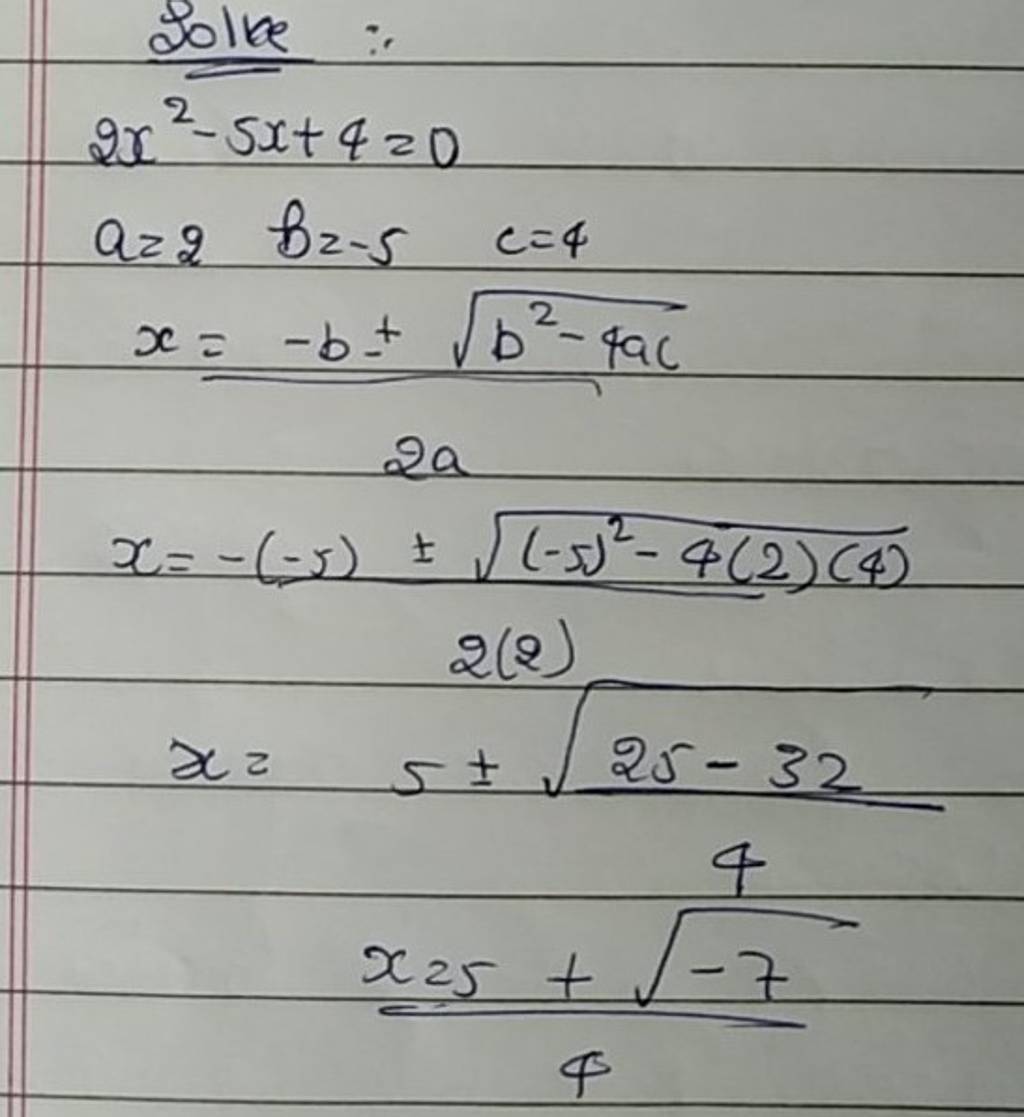 Solve :
2x² - 5x + 4 = 0
a = 2 b = -5 c = 4
x = -b ± √b² - 4ac
2a
x = -(-5) ± √(-5)² - 4(2)(4)
2(2)
x = 5 ± √25 - 32
4
x = 5 + √-7
4